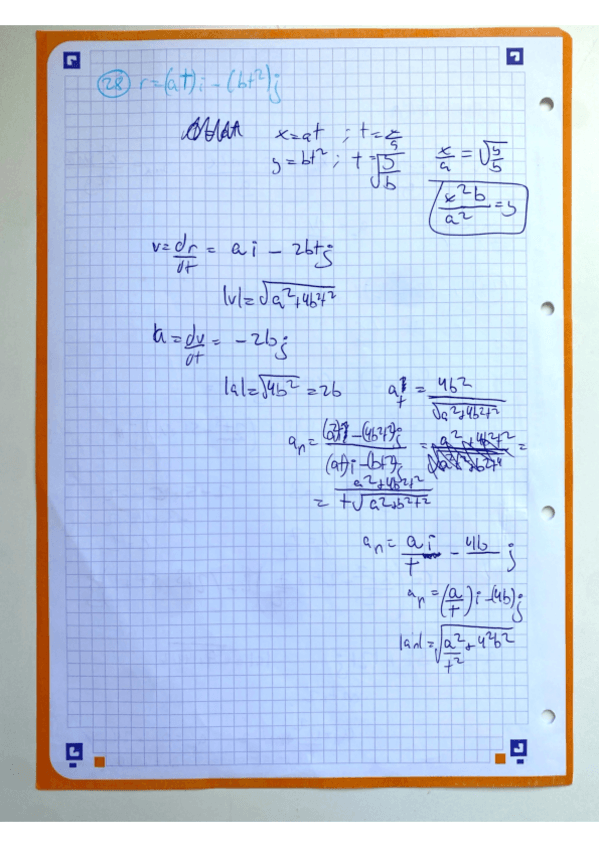 28 r=(at)i-(bt²)j
x=at ; t=x/a
y=bt² ; t=√(y/b)
x/a = √(y/b)
x²b/a² = y
v=dr/dt = ai - 2btj
|v|=√(a²+4b²t²)
a = dv/dt = -2bj
|a|=√(4b²) = 2b
a_t = 4b²/√(a²+4b²t²)
= a²+4b²t²/t√(a²+b²t²)
a_n = ai/t - 4b j
a_n = (a/t)i-(4b)j
|a_n|=√(a²/t²+4²b²)